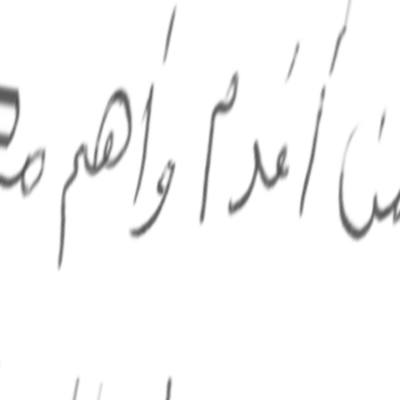 من أقدم وأهم